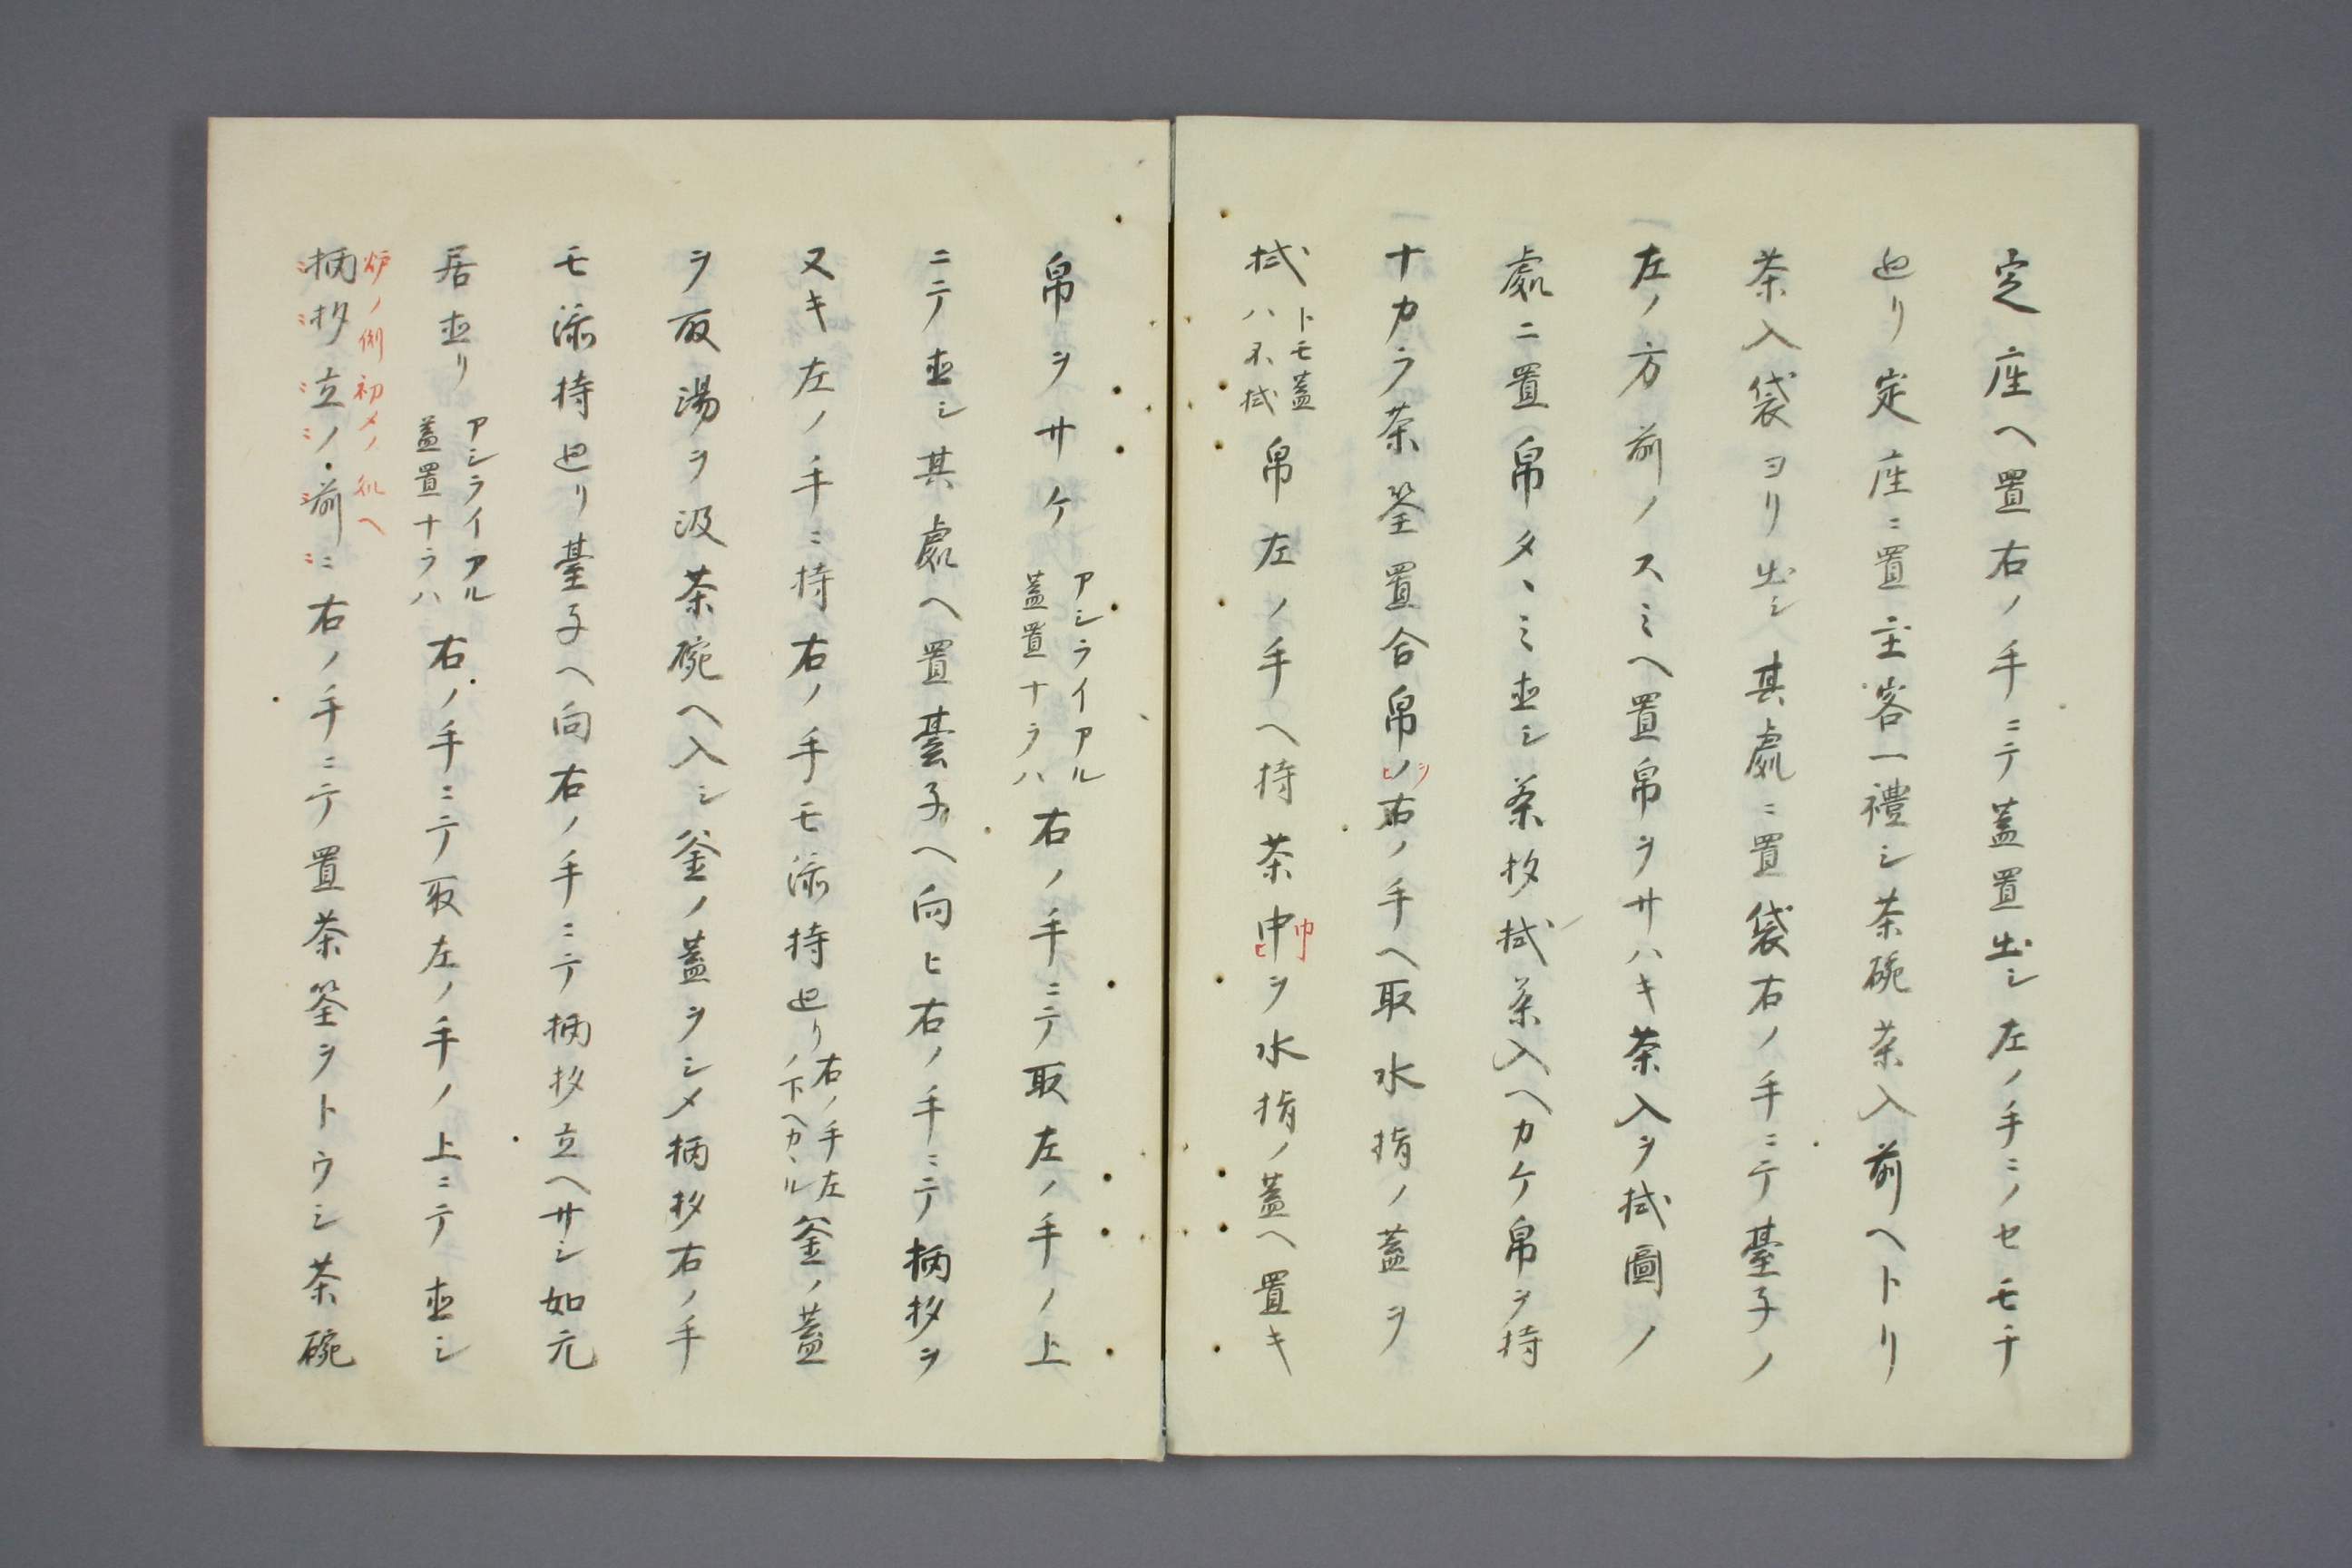 定座ヘ置右ノ手ニテ蓋置出シ左ノ手ニノセモチ
廻リ定座ニ置主客一禮シ茶碗茶入前ヘトリ
茶入袋ヨリ出シ其處ニ置袋右ノ手ニテ臺子ノ
左ノ方前ノスミヘ置帛ヲサハキ茶入ヲ拭圖ノ
處ニ置帛タヽミ直シ茶杓拭茶入ヘカケ帛ヲ持
ナカラ茶筌置合帛ノ右ノ手ヘ取水指ノ蓋ヲ
ヲ
ヒ
拭
トモ蓋
ハ不拭
帛左ノ手ヘ持茶中ヲ水指ノ蓋ヘ置キ
巾
ヒ
帛ヲサケ
アシライアル
蓋置ナラハ
右ノ手ニテ取左ノ手ノ上
ニテ直シ其處ヘ置臺子ヘ向ヒ右ノ手ニテ柄杓ヲ
又キ左ノ手ニ持右ノ手モ添持廻リ
右ノ手左
ノ下ヘカヽル
釜ノ蓋
ヲ取湯ヲ汲茶碗ヘ入シ釜ノ蓋ヲシメ柄杓右ノ手
モ添持廻リ臺子ヘ向右ノ手ニテ柄杓立ヘサシ如元
居直リ
アシライアル
蓋置ナラハ
右ノ手ニテ取左ノ手ノ上ニテ直シ
炉ノ側初メノ処ヘ
柄杓立ノ前ニ右ノ手ニテ置茶筌ヲトウシ茶碗